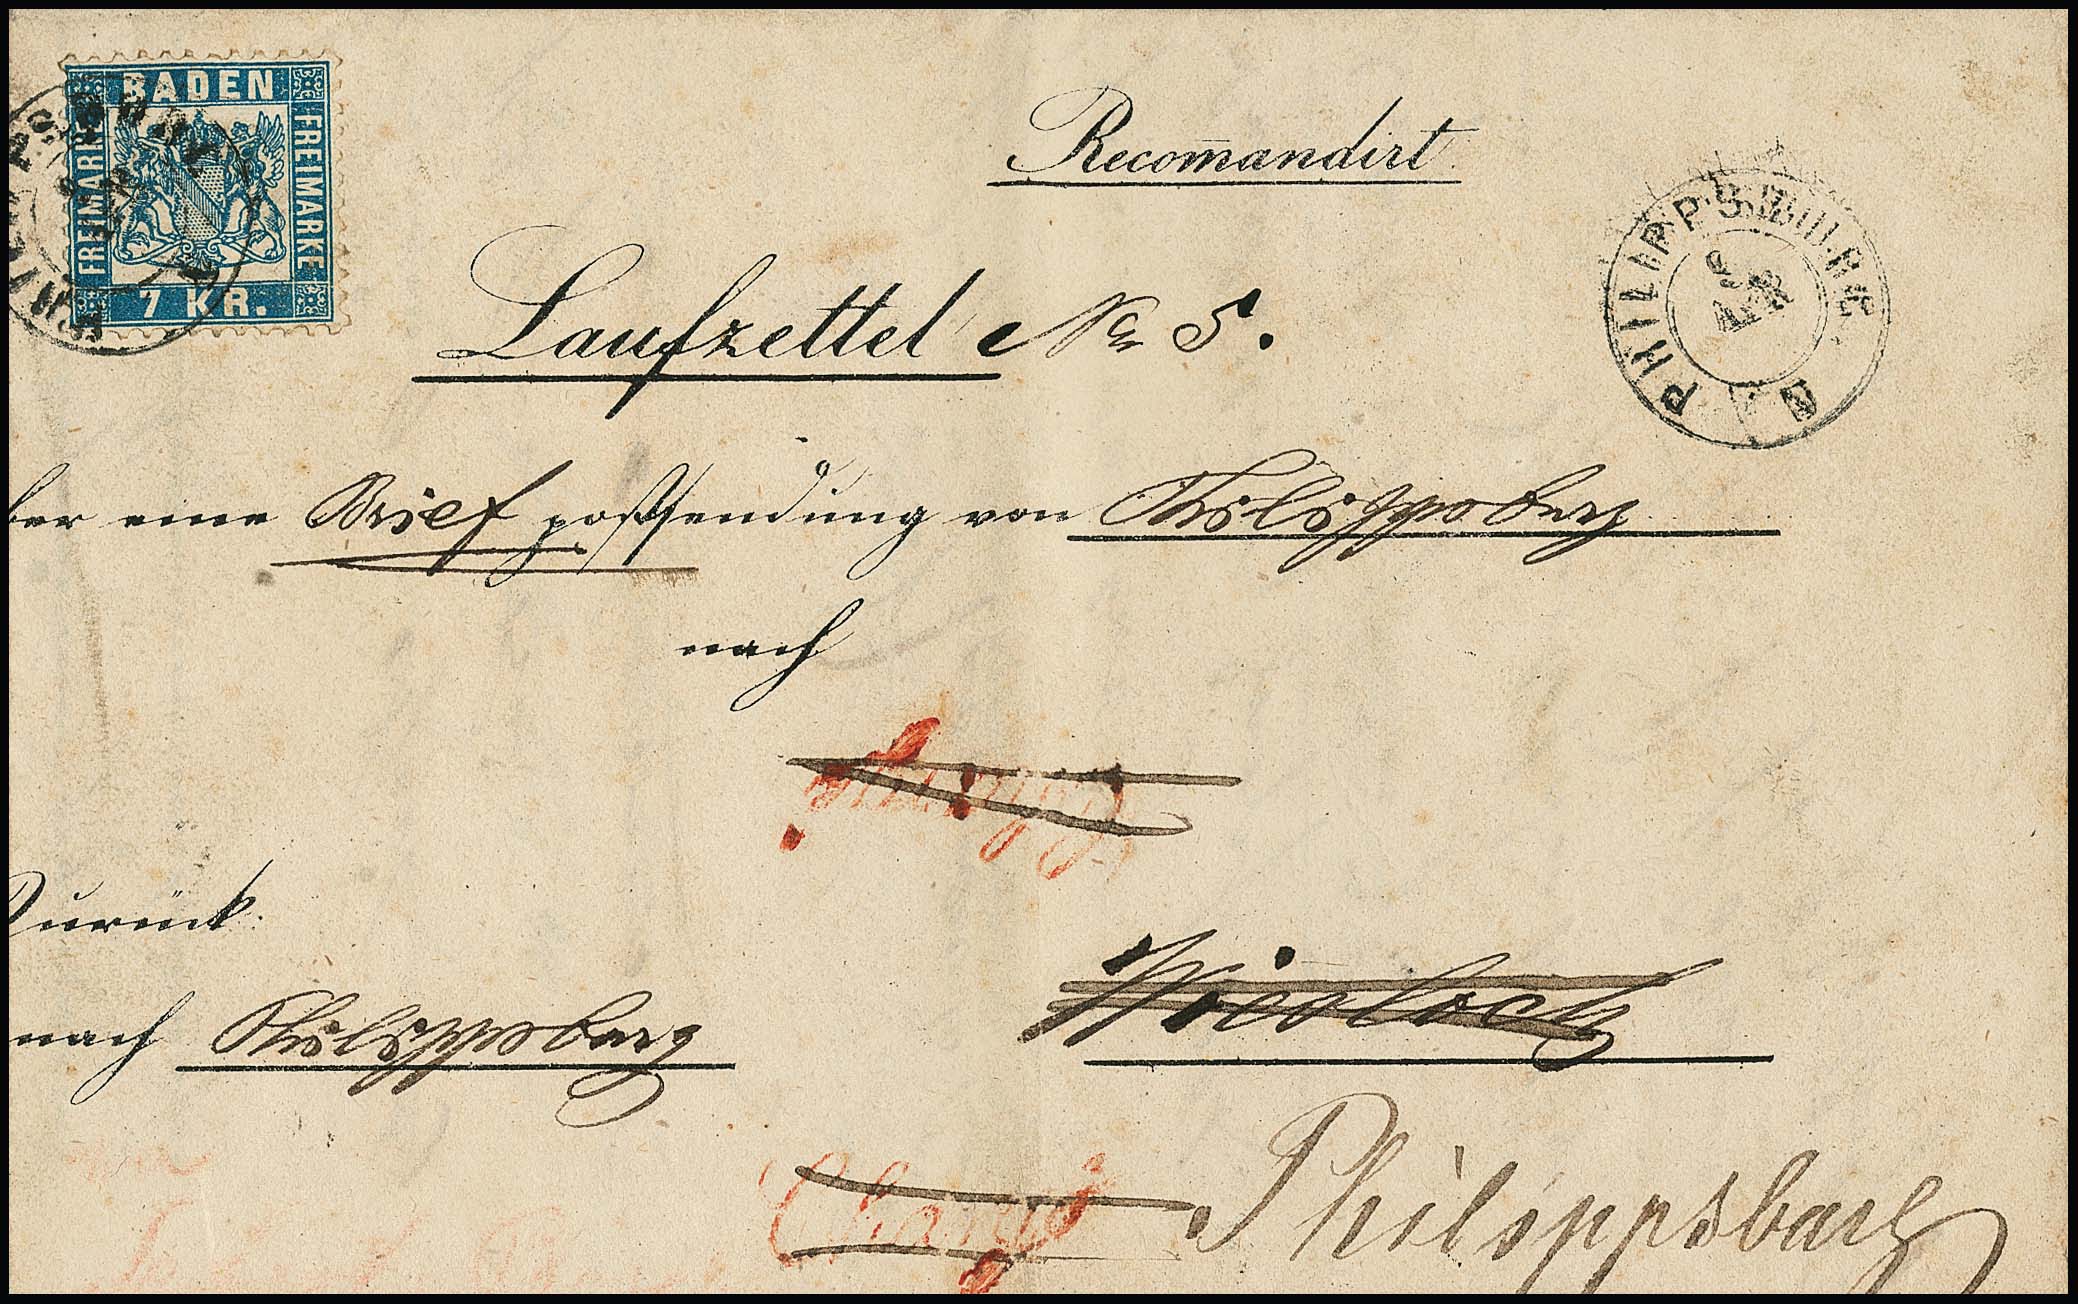 BADEN
FREIMARKE
FREIMARKE
7 KR.
Recom̄andirt
PHILIPPSBURG
9 APR
Laufzettel No 5.
ber eine Brief postsendung von Philippsburg
nach
Zurück
nach Philippsburg
Wiesloch
Chargé
Philippsburg